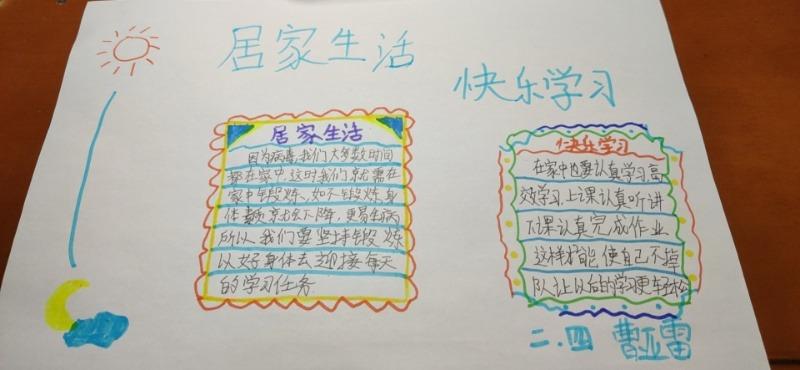 居家生活
快乐学习
居家生活
因为病毒,我们大多数时间
都在家中,这时我们就需在
家中锻炼,如不锻炼,身
体素质就会下降,更易生病
所以,我们要坚持锻炼
以好身体去迎接每天
的学习任务
快乐学习
在家中也要认真学习,高
效学习,上课认真听讲
下课认真完成作业
这样才能使自己不掉
队,让以后的学习更车
二.四 曹亚雷